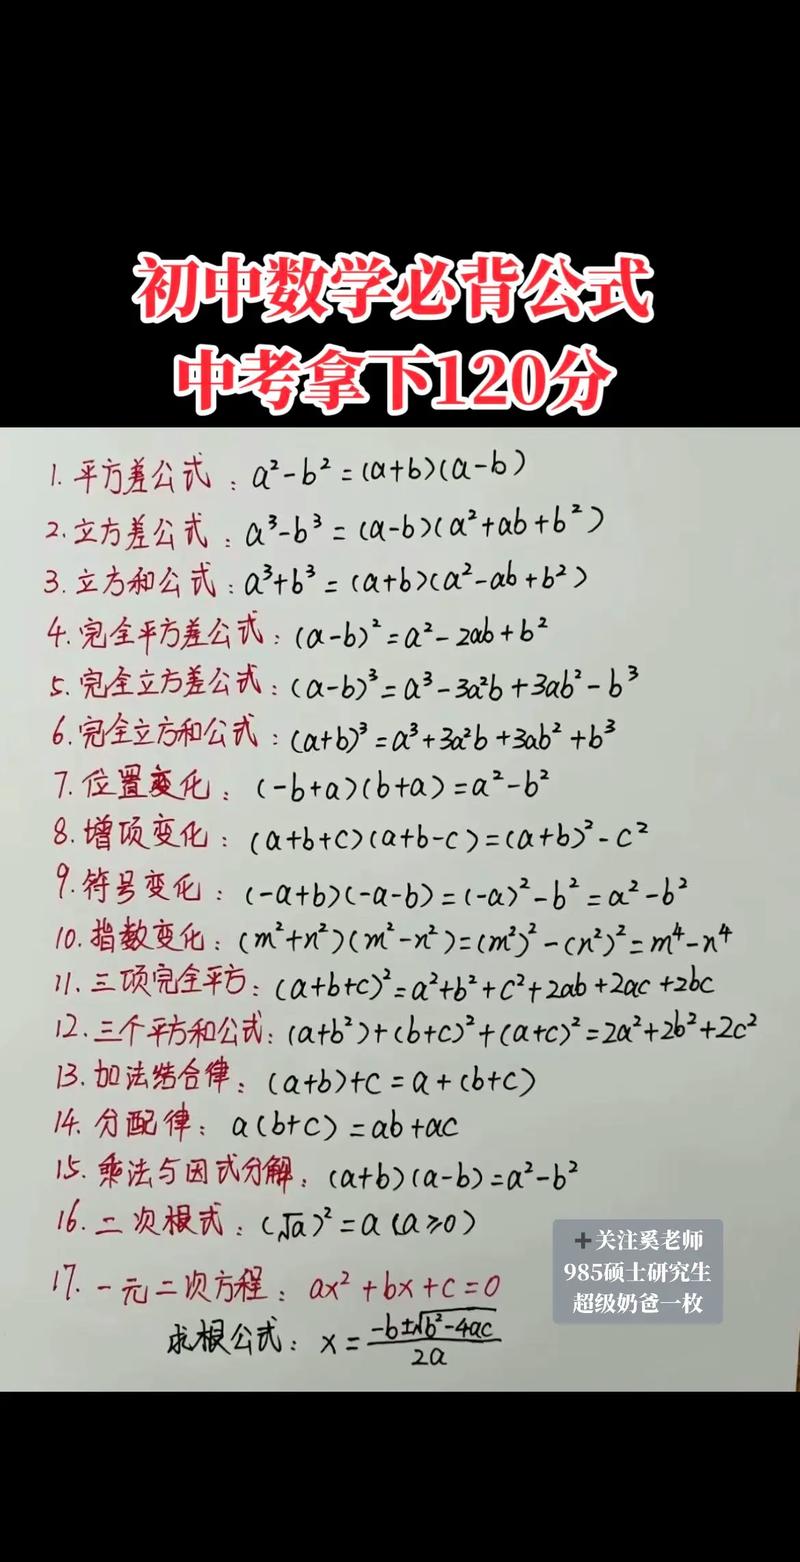 初中数学必背公式
中考拿下120分
1. 平方差公式：a²-b²=(a+b)(a-b)
2. 立方差公式：a³-b³=(a-b)(a²+ab+b²)
3. 立方和公式：a³+b³=(a+b)(a²-ab+b²)
4. 完全平方差公式：(a-b)²=a²-2ab+b²
5. 完全立方差公式：(a-b)³=a³-3a²b+3ab²-b³
6. 完全立方和公式：(a+b)³=a³+3a²b+3ab²+b³
7. 位置变化：(-b+a)(b+a)=a²-b²
8. 增项变化：(a+b+c)(a+b-c)=(a+b)²-c²
9. 符号变化：(-a+b)(-a-b)=(-a)²-b²=a²-b²
10. 指数变化：(m²+n²)(m²-n²)=(m²)²-(n²)²=m⁴-n⁴
11. 三项完全平方：(a+b+c)²=a²+b²+c²+2ab+2ac+2bc
12. 三个平方和公式：(a+b²)+(b+c)²+(a+c)²=2a²+2b²+2c²
13. 加法结合律：(a+b)+c=a+(b+c)
14. 分配律：a(b+c)=ab+ac
15. 乘法与因式分解：(a+b)(a-b)=a²-b²
16. 二次根式：(√a)²=a(a≥0)
17. 一元二次方程：ax²+bx+c=0
求根公式：x=(-b±√(b²-4ac))/2a
+关注奚老师
985硕士研究生
超级奶爸一枚